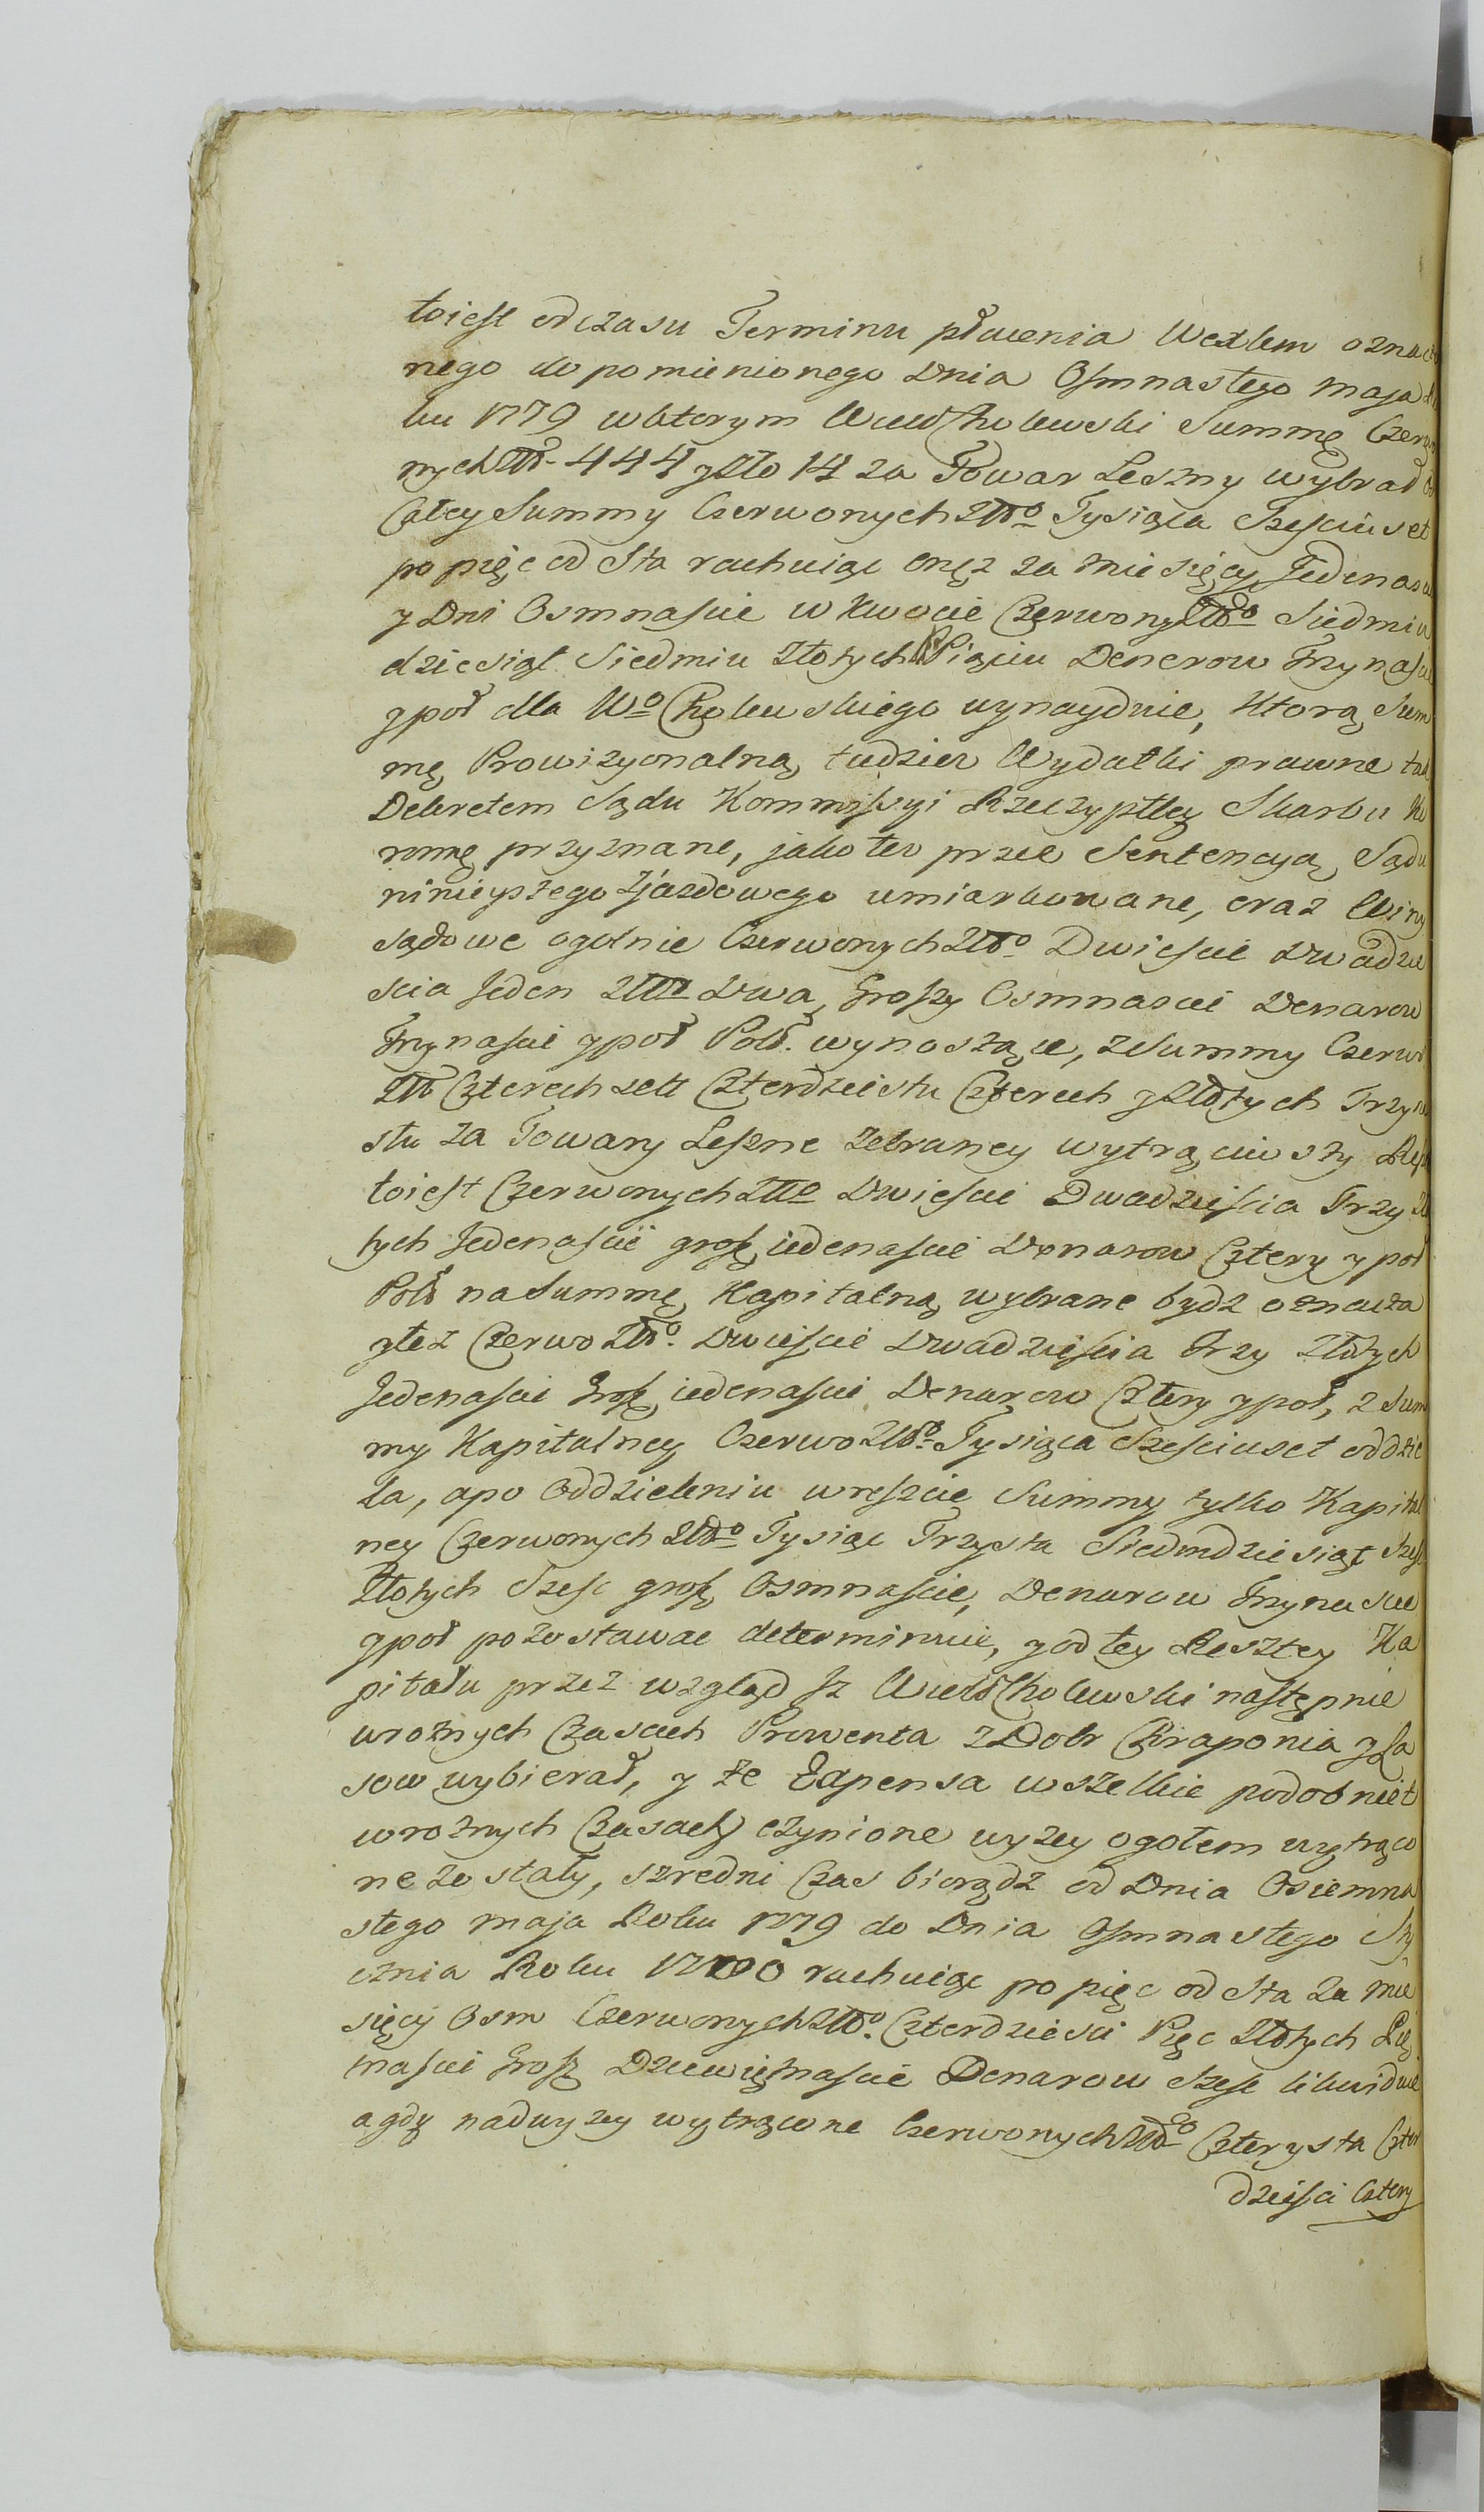 toiest od czasu Terminu płacenia Wexlem oznacz
nego do pomienionego Dnia Osmnastego Maja
ku 1779 w ktorym Wielł Cholewski Summę Czerwo
nych Złł. 444 y Zło 14 za Towar Leszny wybrał od
Całey Summy Czerwonych Złło Tysiąca Szesciuset
po pięc od Sta rachuiąc onęż za Miesięcy Jedenascie
y Dni Osmnascie w kwocie Czerwony Złło Siedmiu
dziesiąt Siedmiu Złotych Pięciu Denerow Trzynascie
y poł dla Wo Cholewskiego wynayduie, Ktorą Sum
mę Prowizyonalną tudzież Wydatki prawne tak
Dekretem Sądu Kommissyi Rzeczyptey Skarbu Ko
ronnę przyznane, jako też przez Sentencyą Sądu
ninieyszego Zjazdowego umiarkowane, oraz Winy
sądowe ogolnie Czerwonych Złło Dwiescie Dwadzie
scia Jeden Złło Dwa, Groszy Osmnascie Denarow
Trzynascie y poł Pol. wynoszące, z Summy Czerwo
Złł Czterech sett Czterdziestu Czterech y Złotych Trzyna
stu za Towary Leszne zebraney wytrąciwszy Resztę
toiest Czerwonych Złło Dwiescie Dwadziescia Trzy Zło
tych Jedenascie grosz iedenascie Denarow Cztery y poł
Pol na Summę Kapitalną wybrane bydz oznacza
y też Czerwo Złło Dwiescie Dwadziescia Trzy Złotych
Jedenascie Grosz iedenascie Denarow Cztery y poł, z Sum
my Kapitalney Czerwo Złło Tysiąca Szesciuset oddzie
la, a po Oddzieleniu wreszcie Summy tylko Kapital
ney Czerwonych Złło Tysiąc Trzysta Siedmdziesiąt Szesc
Złotych Szesc grosz Osmnascie, Denarow Trzynascie
y poł pozostawac determinuie, y od tey Resztey Ka
pitału przez wzgląd iż Wielł Cholewski następnie
w rożnych Czasach Prowenta z Dobr Chraponia y La
sow wybierał, y że Expensa wszelkie podobnież
w rożnych Czasach czynione wyzey ogołem wytrąco
ne zostały, szredni Czas biorądz od Dnia Osiemna
stego Maja Roku 1779 do Dnia Osmnastego Sty
cznia Roku 1780 rachuiąc po pięc od Sta za Mie
sięcy Osm Czerwonych Złło. Czterdziesci Pięc Złotych Pię
tnascie Grosz Dziewiętnascie Denarow Szesc likwiduie
a gdy nadwyzey wytrącone Czerwonych Złło Czterysta Czter
dziesci Cztery